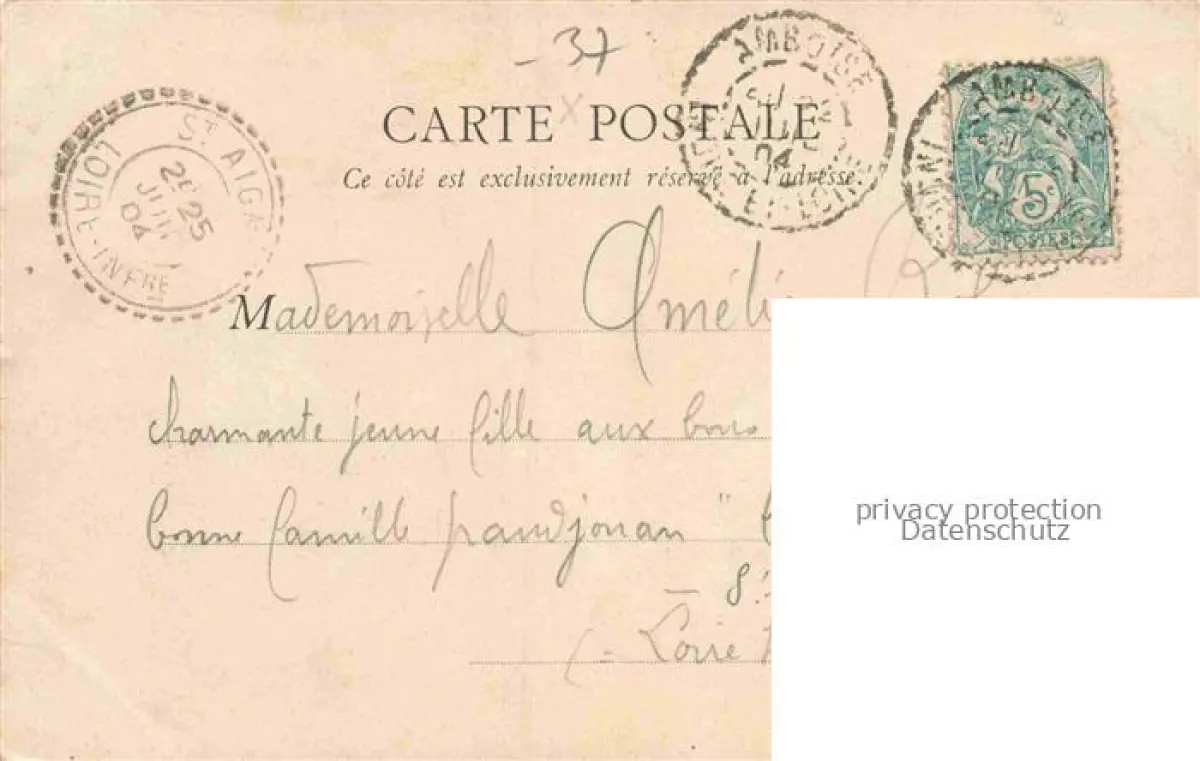 - 37
CARTE POSTALE
Ce côté est exclusivement réservé à l'adresse.
AMBOISE
04
AMBOISE
5c
POSTES
ST AIG
2E 25
JUIN
04
LOIRE-INFRE
Mademoiselle Améli
charmante jeune fille aux bons
bonne famille "
- St
(- Loire
privacy protection
Datenschutz